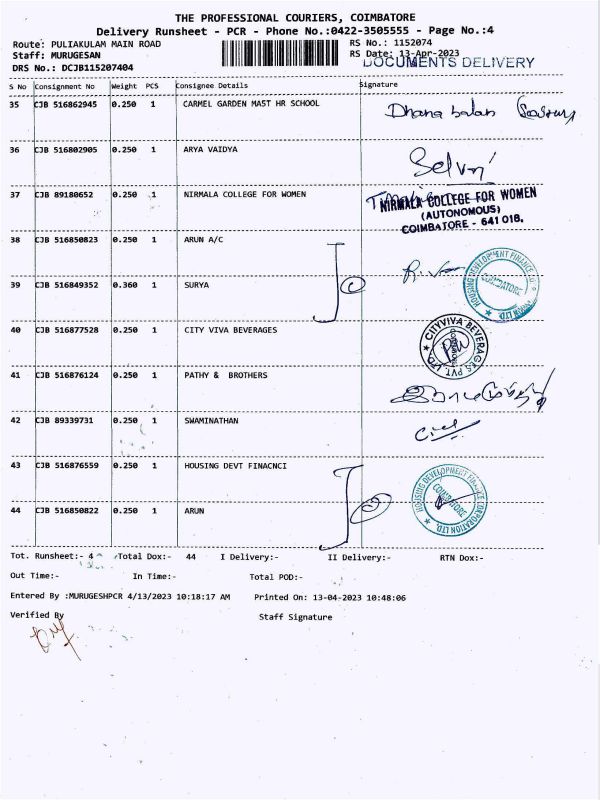 THE PROFESSIONAL COURIERS, COIMBATORE
Delivery Runsheet - PCR - Phone No.:0422-3505555 - Page No.:4
Route: PULIAKULAM MAIN ROAD
RS No.: 1152074
Staff: MURUGESAN
RS Date: 13-Apr-2023
DOCUMENTS DELIVERY
DRS No.: DCJB115207404
S No Consignment No Weight PCS Consignee Details Signature
35 CJB 516862945 0.250 1 CARMEL GARDEN MAST HR SCHOOL Dhana balan
36 CJB 516802905 0.250 1 ARYA VAIDYA Selvi
37 CJB 89180652 0.250 1 NIRMALA COLLEGE FOR WOMEN
NIRMALA COLLEGE FOR WOMEN
(AUTONOMOUS)
COIMBATORE - 641 018.
38 CJB 516850823 0.250 1 ARUN A/C
39 CJB 516849352 0.360 1 SURYA
HOUSING DEVELOPMENT FINANCE
COIMBATORE
40 CJB 516877528 0.250 1 CITY VIVA BEVERAGES
CITYVIVA BEVERAGES PVT. LTD.
41 CJB 516876124 0.250 1 PATHY & BROTHERS
42 CJB 89339731 0.250 1 SWAMINATHAN
43 CJB 516876559 0.250 1 HOUSING DEVT FINACNCI
HOUSING DEVELOPMENT FINANCE CORPORATION LTD.
COIMBATORE
44 CJB 516850822 0.250 1 ARUN
Tot. Runsheet:- 4 Total Dox:- 44 I Delivery:- II Delivery:- RTN Dox:-
Out Time:- In Time:- Total POD:-
Entered By :MURUGESHPCR 4/13/2023 10:18:17 AM Printed On: 13-04-2023 10:48:06
Verified By Staff Signature